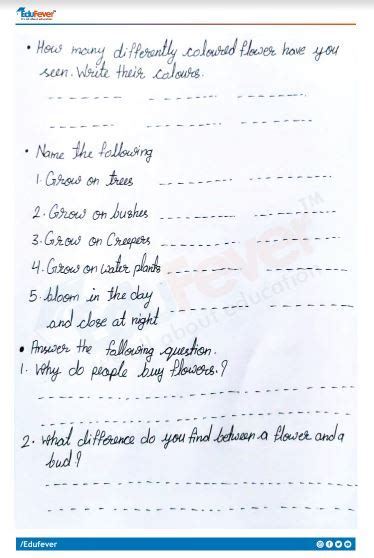 EduFever
• How many differently coloured flower have you
seen. Write their colours.
• Name the following
1. Grow on trees
2. Grow on bushes
3. Grow on Creepers
4. Grow on water plants
5. bloom in the day
and close at night
• Answer the following question.
1. Why do people buy flowers.?
2. What difference do you find between a flower and a
bud?
/Edufever